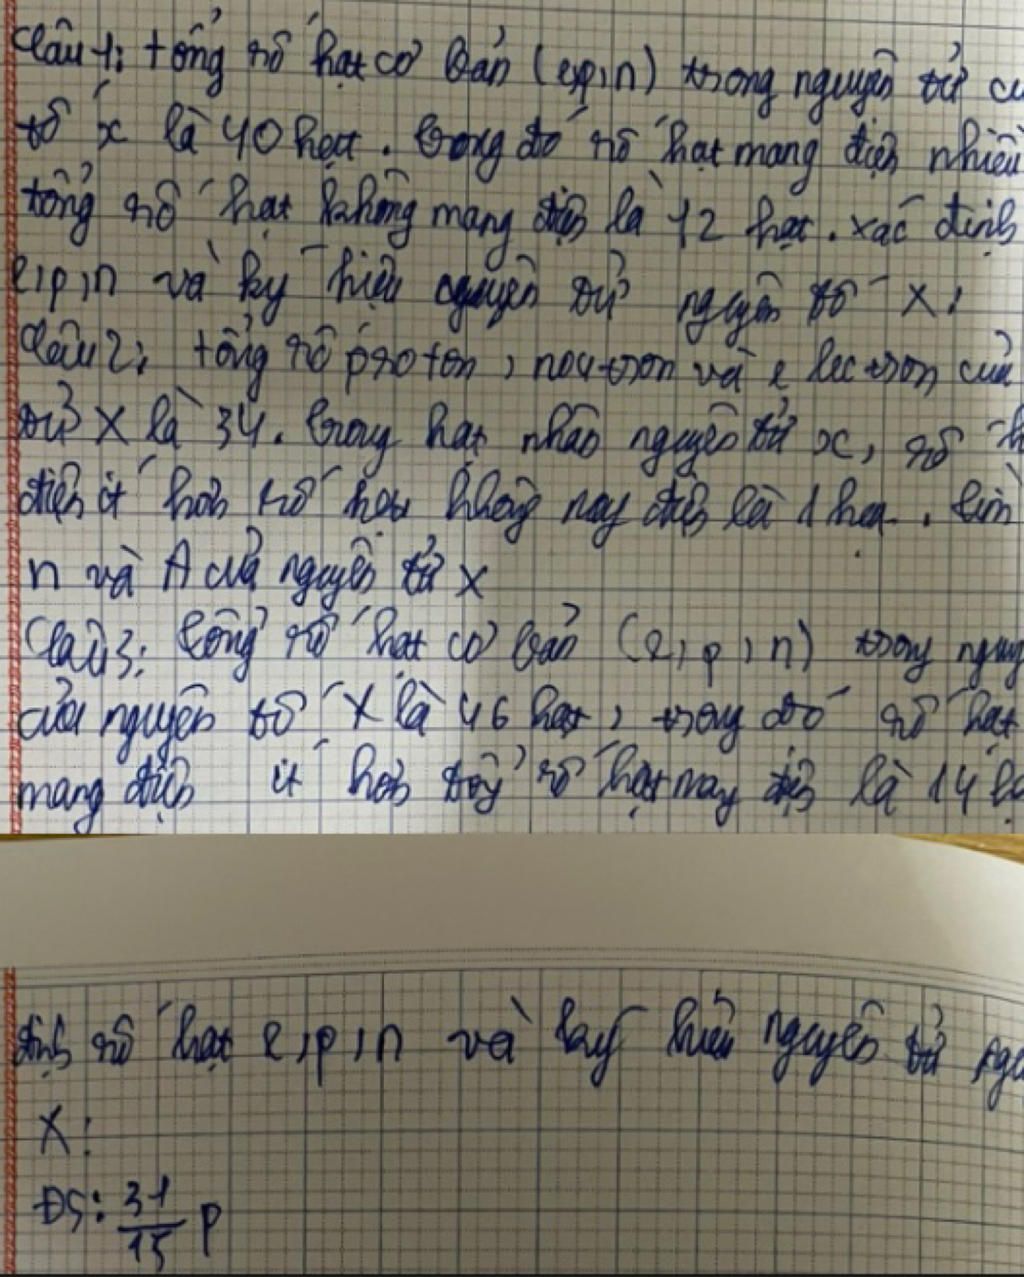 Câu 1: tổng số hạt cơ bản (e,p,n) trong nguyên tử
tố x là 40 hạt. trong đó số hạt mang điện nhiều
tổng số hạt không mang điện là 12 hạt. xác định
e,p,n và ký hiệu nguyên tử nguyên tố X:
Câu 2: tổng số proton, nơ tron và e lec tron của
tử X là 34. trong hạt nhân nguyên tử x, số
điện ít hơn số hạt không mang điện là 1 hạt. tìm
n và A của nguyên tử X
Câu 3: tổng số hạt cơ bản (e, p, n) trong
của nguyên tố X là 46 hạt, trong đó số hạt
mang điện ít hơn số hạt mang điện là 14
định số hạt e,p,n và ký hiệu nguyên tử
X:
ĐS: 31
15 P